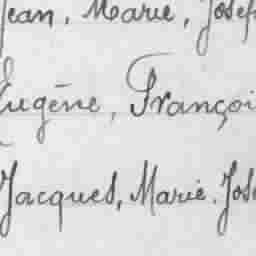 Jean, Marie, Josep
Eugène, Françoi
Jacques, Marie. Jos